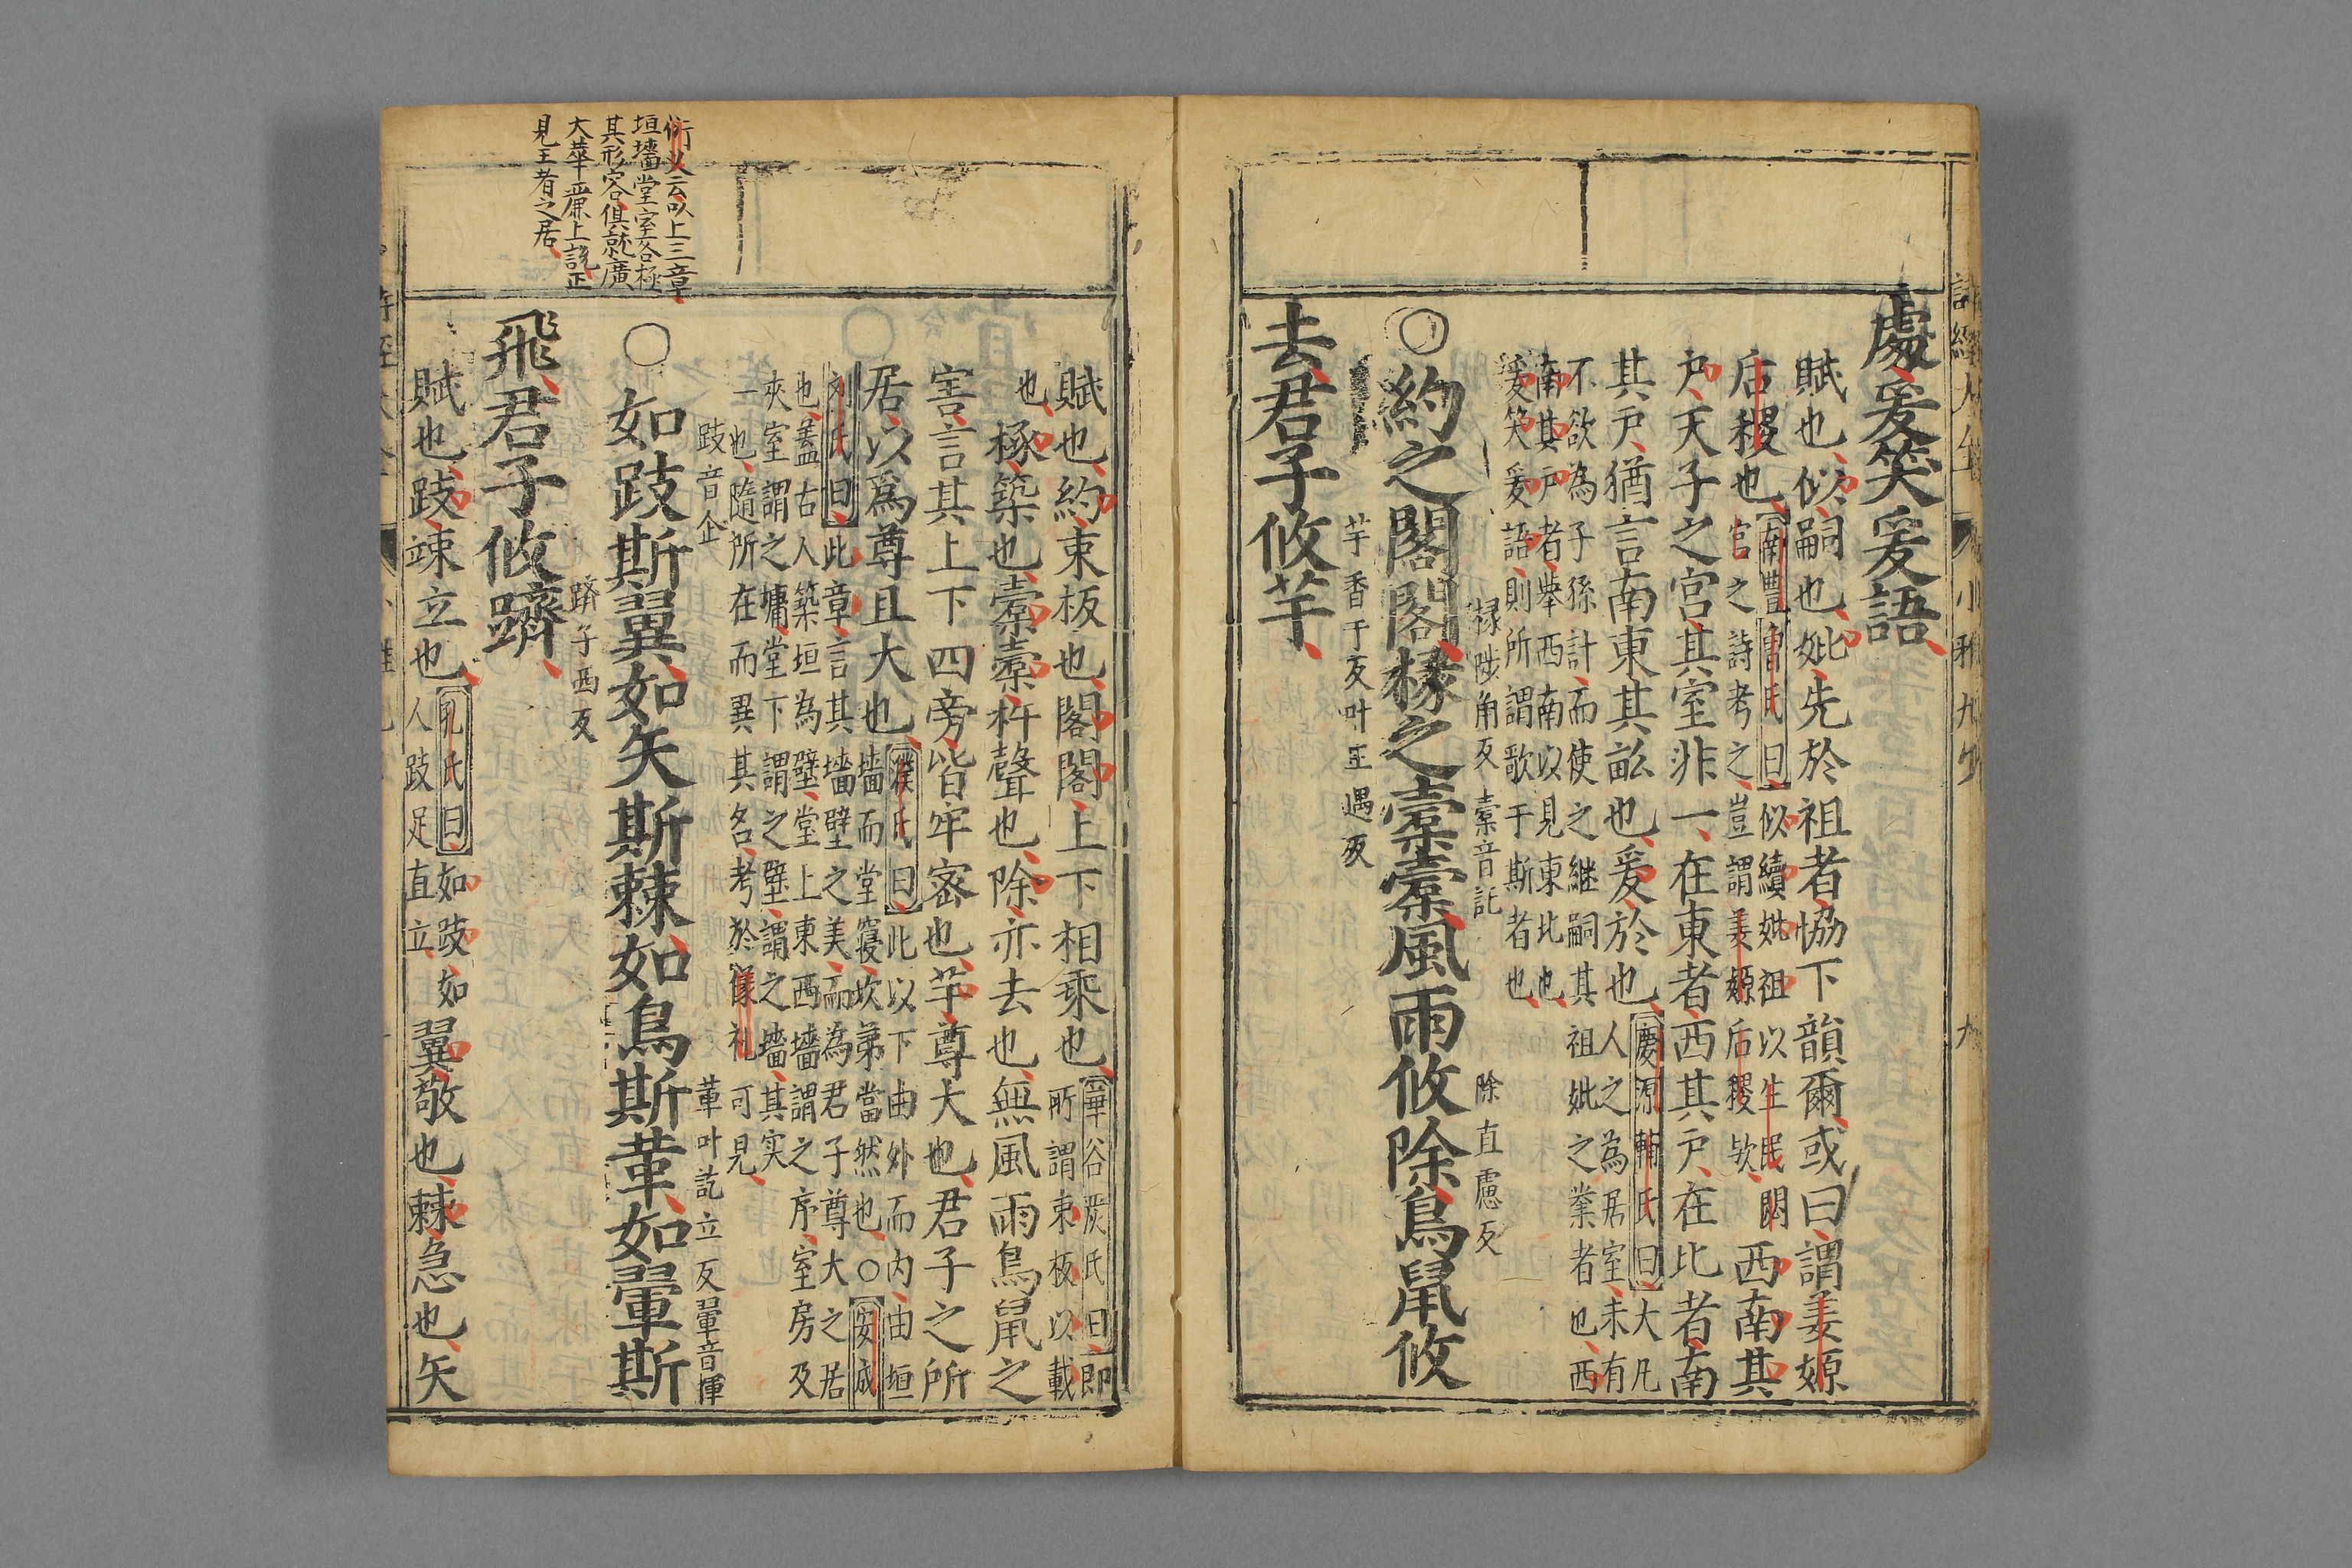 處爰笑爰語
賦也似嗣也妣先於祖者恊下韻爾或曰謂姜嫄
后稷也
南豊曾氏曰似續妣祖以生民閟
宮之詩考之豈謂姜嫄后稷欤
西南其
戶天子之宮其室非一在東者西其戶在北者南
其戶猶言南東其畝也爰於也
慶源輔氏曰大凡
人之為居室未有
不欲為子孫計而使之継嗣其祖妣之業者也西
南其戶者舉西南以見東北也
爰笑爰語則所謂歌于斯者也
椓陟角反 橐音託 除直慮反
○約之閣閣椓之橐橐風雨攸除鳥鼠攸
芋香于反叶王遇反
去君子攸芋
詩經大全
小雅九
九
賦也約束板也閣閣上下相乘也
華谷嚴氏曰即
所謂束板以載
也
椓築也橐橐杵聲也除亦去也無風雨鳥鼠之
害言其上下四旁皆牢密也芋尊大也君子之所
居以爲尊且大也
濮氏曰此以下由外而內由垣
墻而堂寝坎第當然也○安成
刘氏曰此章言其墻壁之美而為君子尊大之居
也蓋古人築垣為壁堂上東西墻謂之序室房及
夾室謂之墉堂下謂之壁謂之墻其实
一也隨所在而異其名考於儀礼可見
跂音企 革叶訖立反 翬音揮
○如跂斯翼如矢斯棘如鳥斯革如翬斯
躋子西反
飛君子攸躋
賦也跂竦立也
孔氏曰如跂如
人跂足直立
翼敬也棘急也矢
衍义云以上三章
垣墻堂室各極
其形容俱就廣
大華麗上說正
見王者之居